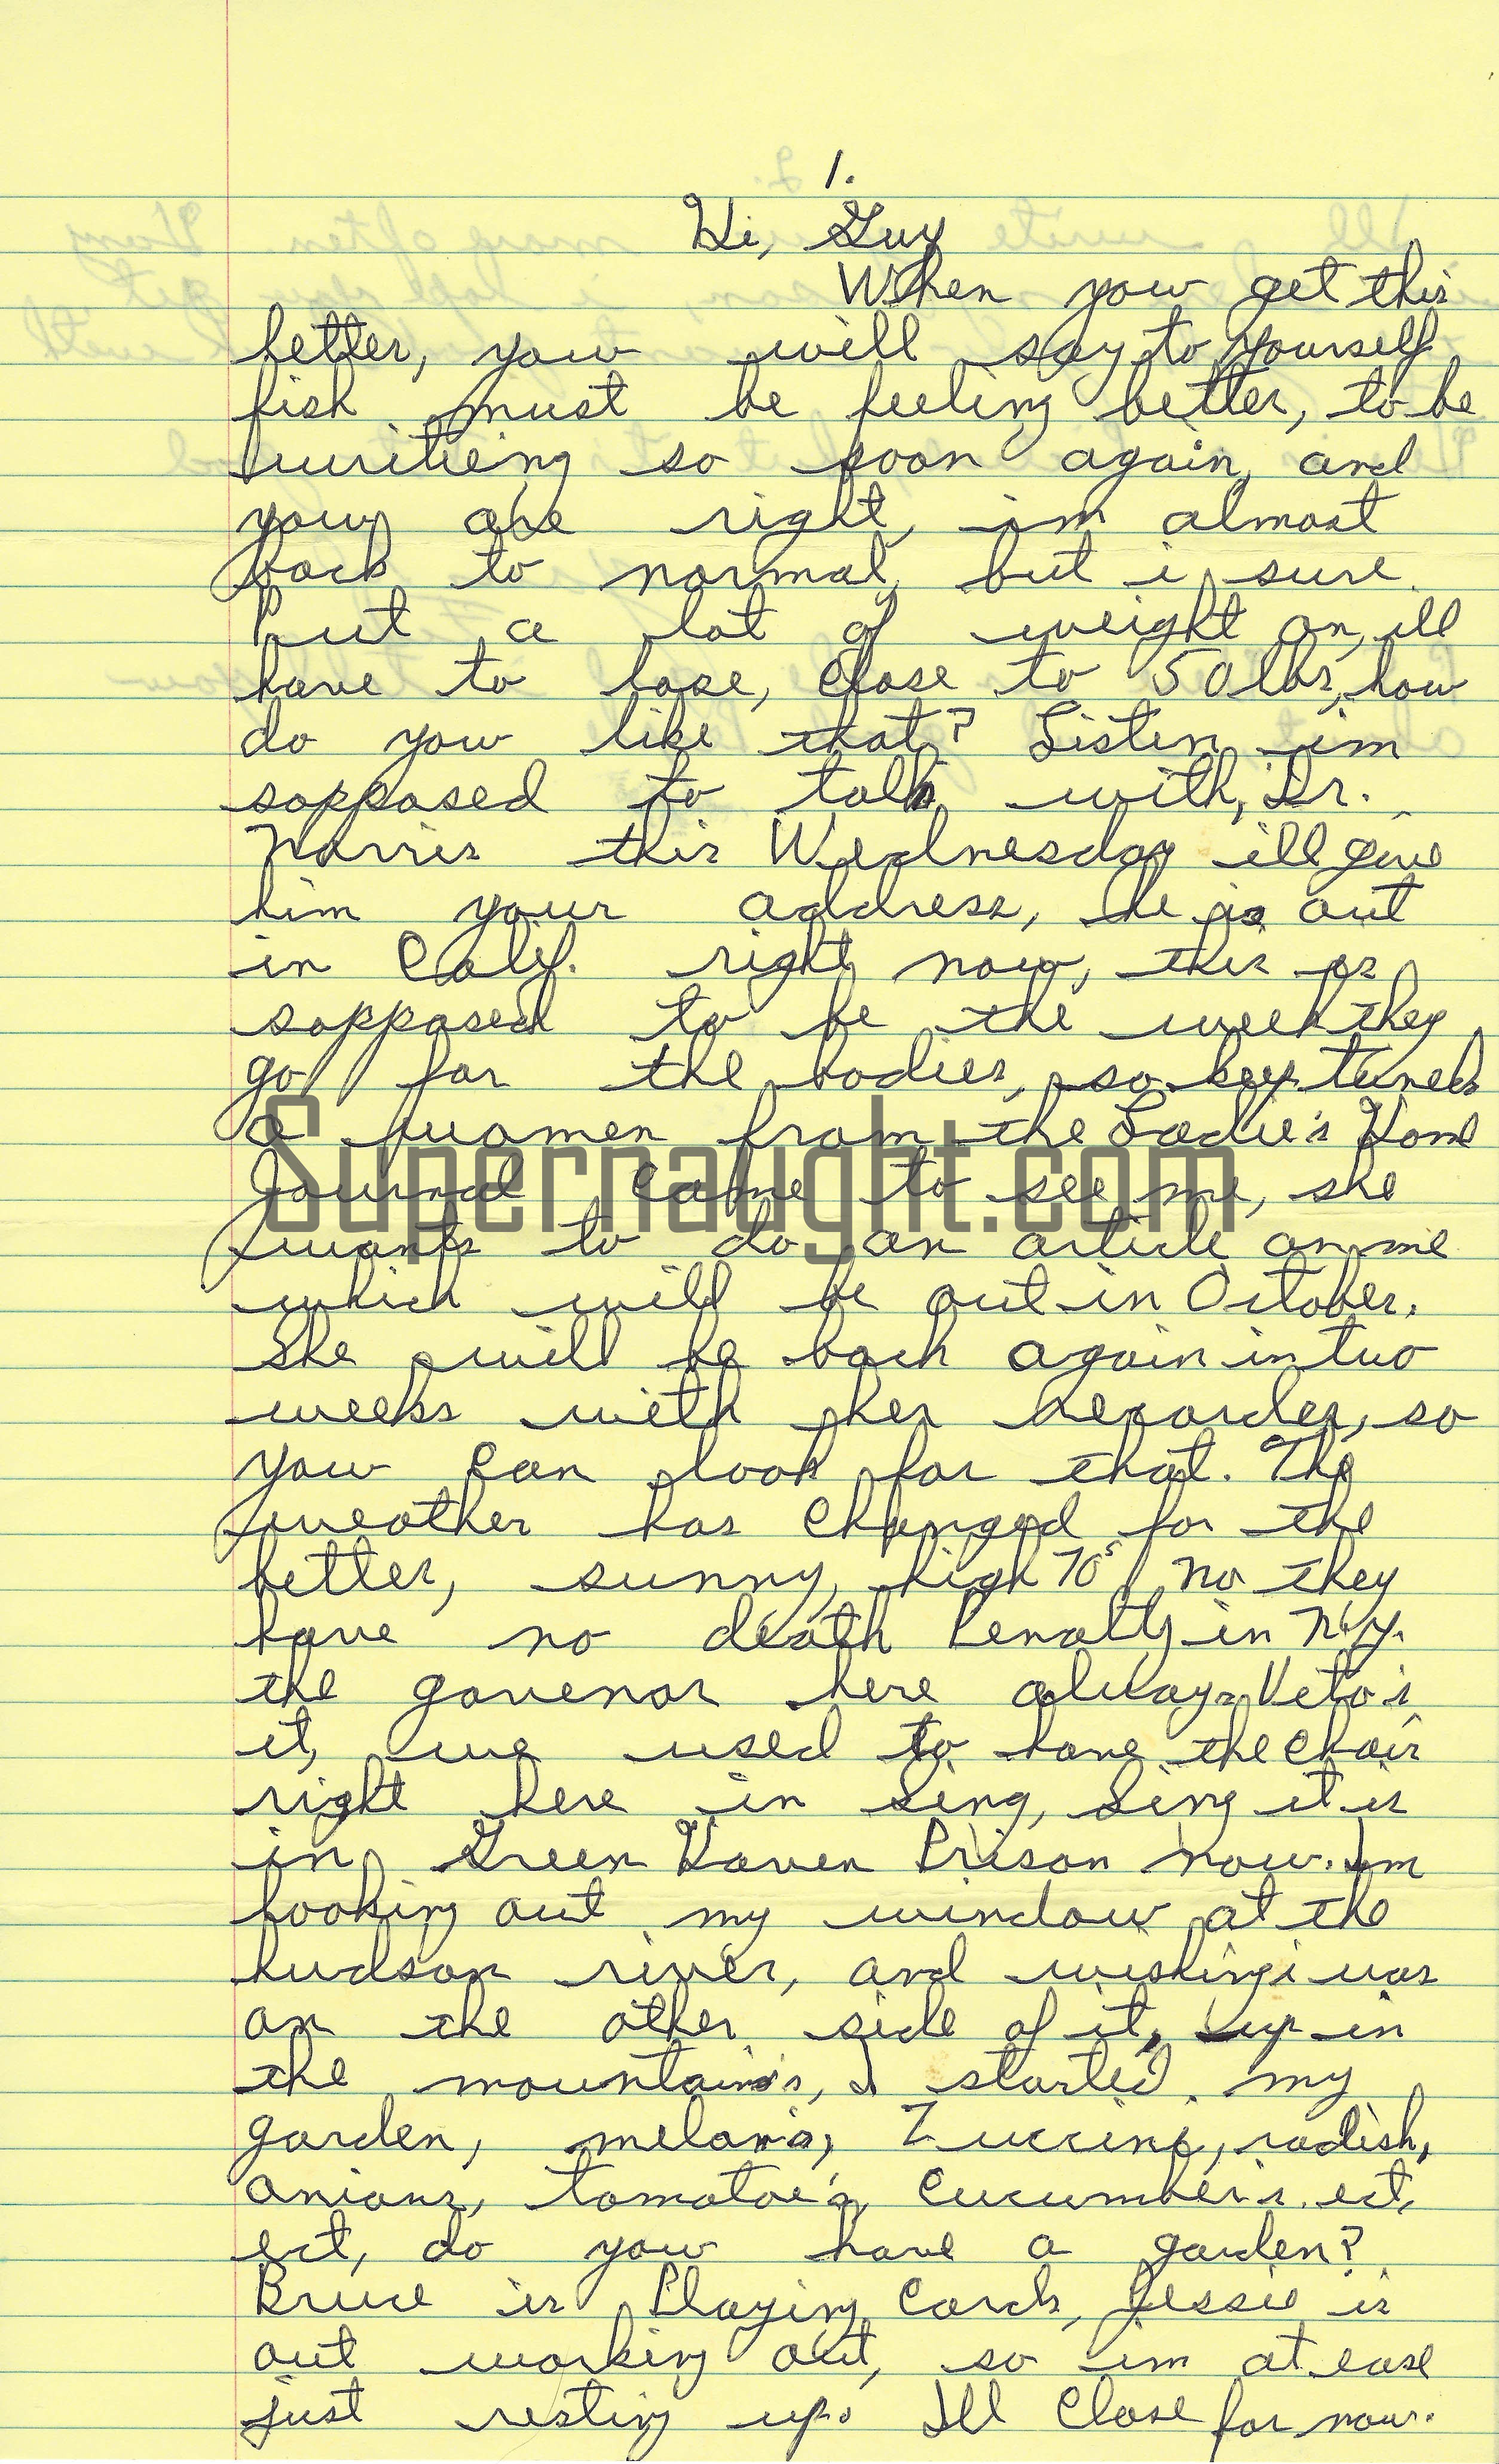 1.
Hi, Guy
When you get this
letter, you will say to yourself
fish must be feeling better, to be
writieing so soon again, and
you are right, im almost
back to normal, but i sure
put a lot of weight on, ill
have to lose, close to 50 lbs, how
do you like that? Listen im
sopposed to talk with, Dr.
Norris this Wednesday ill give
him your address, he is out
in Calif. right now, this is
sopposed to be the week they
go for the bodies, so key tuned
a women from the Ladie's Home
Journal came to see me, she
wants to do an article on me
which will be out in October.
She will be back again in two
weeks with her recorder, so
you can look for that. The
weather has changed for the
better, sunny, high 70s, No they
have no death Penalty in N.Y.
the govenor here always Veto's
it, we used to have the chair
right here in Sing, Sing it is
in Green Haven Prison now. Im
looking out my window at the
hudson river, and wishing i was
on the other side of it, up in
the mountain's, I started my
garden, melon's, Zuccini, radish,
onions, tomatoe's, cucumber's. ect,
ect, do you have a garden?
Bruce is Playing Cards, Jessie is
out working out, so im at ease
just resting up. Ill Close for now.
Supernaught.com